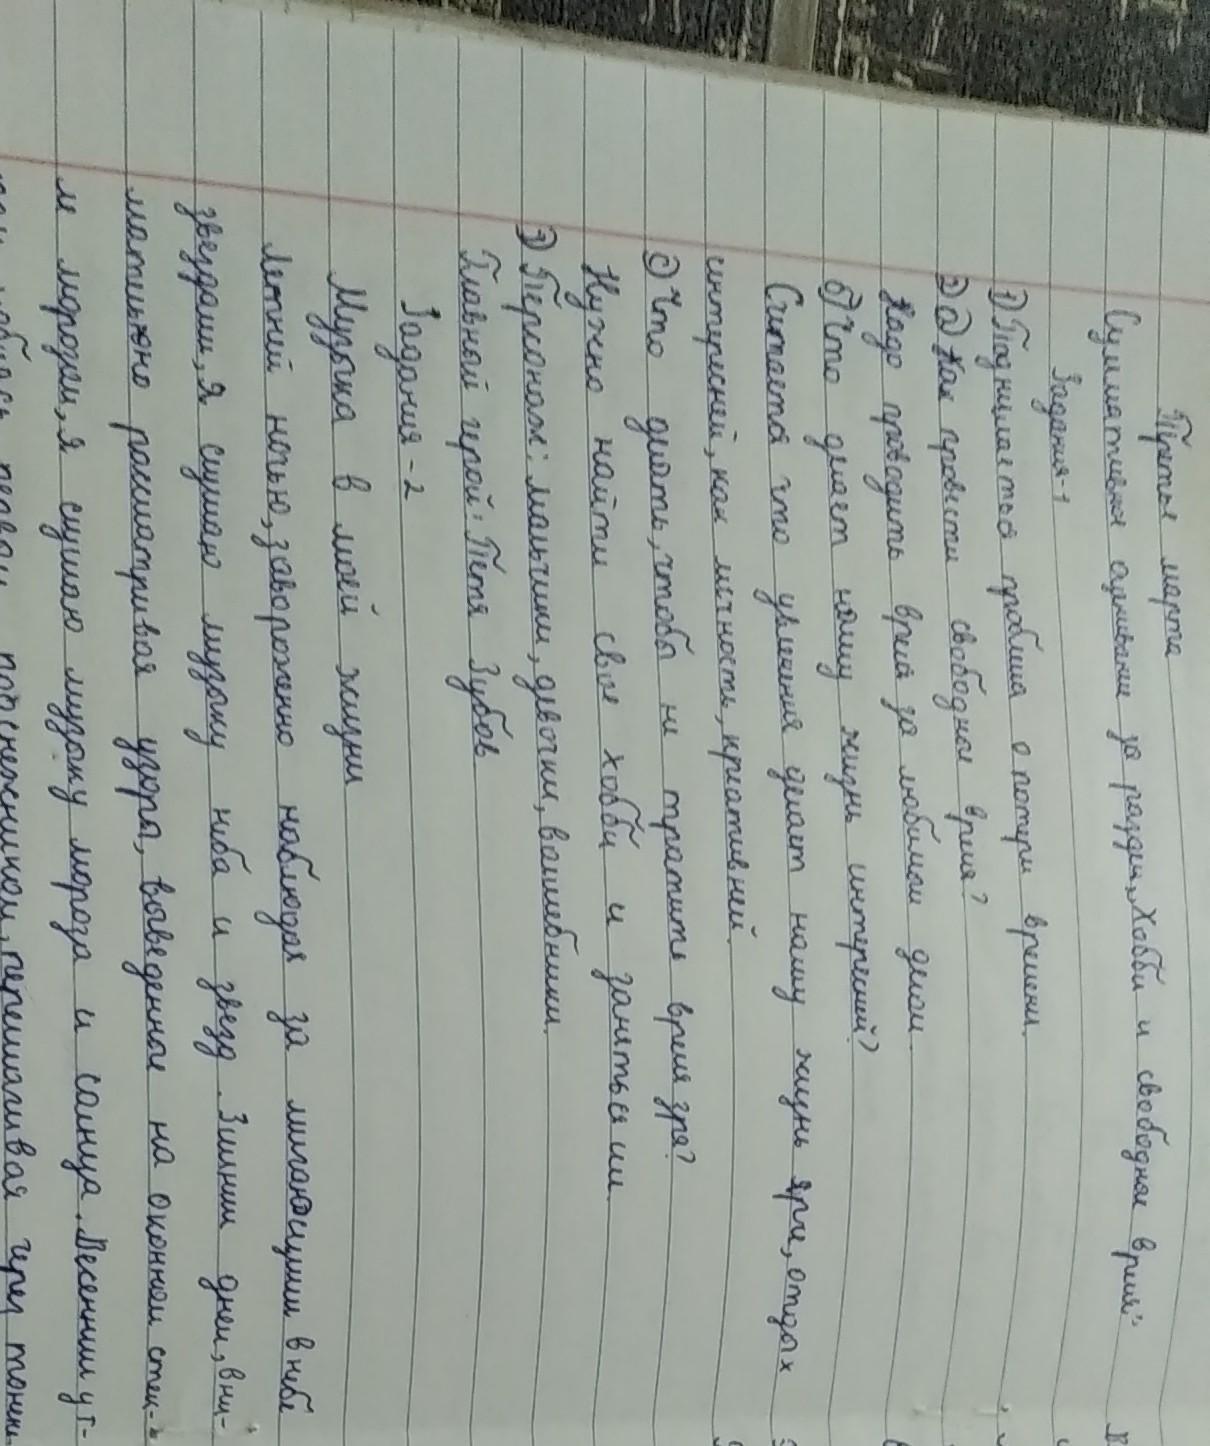 Третье марта
Суммативное оценивание за раздел „Хобби и свободное время"
Задания-1
1) Поднимаеться проблема о потери времени.
2) а) Как провести свободное время?
Надо проводить время за любимом делом.
б) Что делает нашу жизнь интересней?
Считается что увлечения делает нашу жизнь ярче, отдых
интересней, как личность, креативней.
с) Что делать, чтобы не тратить время зря?
Нужно найти свое хобби и заняться им.
3) Персонаж: мальчики, девочки, волшебники.
Главный герой: Петя Зубов
Задания-2
Музыка в моей жизни
Летней ночью, завороженно наблюдая за мигающими в небе
звездами, я слушаю музыку неба и звезд. Зимним днем, вни-
мательно рассматривая узора, выведенное на оконном стек-
ле морозом, я слушаю музыку мороза и солнца. Весенним ут-
первым подснежником, перешагивая через тонень